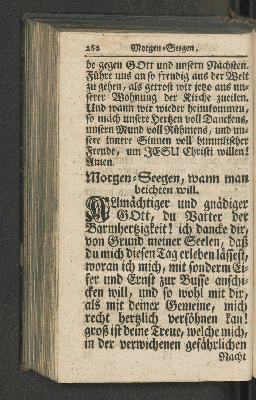 252 Morgen-Seegen,
be gegen GOtt und unsern Nächsten.
Führe uns an so freudig aus der Welt
zu gehen, als getrost wir jetzo aus un-
serer Wohnung der Kirche zueilen.
Und wann wir wieder heimkommen,
so mach unsere Hertzen voll Danckens,
unsern Mund voll Rühmens, und un-
sere innere Sinnen voll himmlischer
Freude, um JESU Christi willen!
Amen.
Morgen-Seegen, wann man
beichten will.
ALlmächtiger und gnädiger
GOtt, du Vatter der
Barmhertzigkeit! ich dancke dir,
von Grund meiner Seelen, daß
du mich diesen Tag erleben lässest,
woran ich mich, mit sonderm Ei-
fer und Ernst zur Busse anschi-
cken will, und so wohl mit dir,
als mit deiner Gemeine, mich
recht hertzlich versöhnen kan!
groß ist deine Treue, welche mich,
in der verwichenen gefährlichen
Nacht